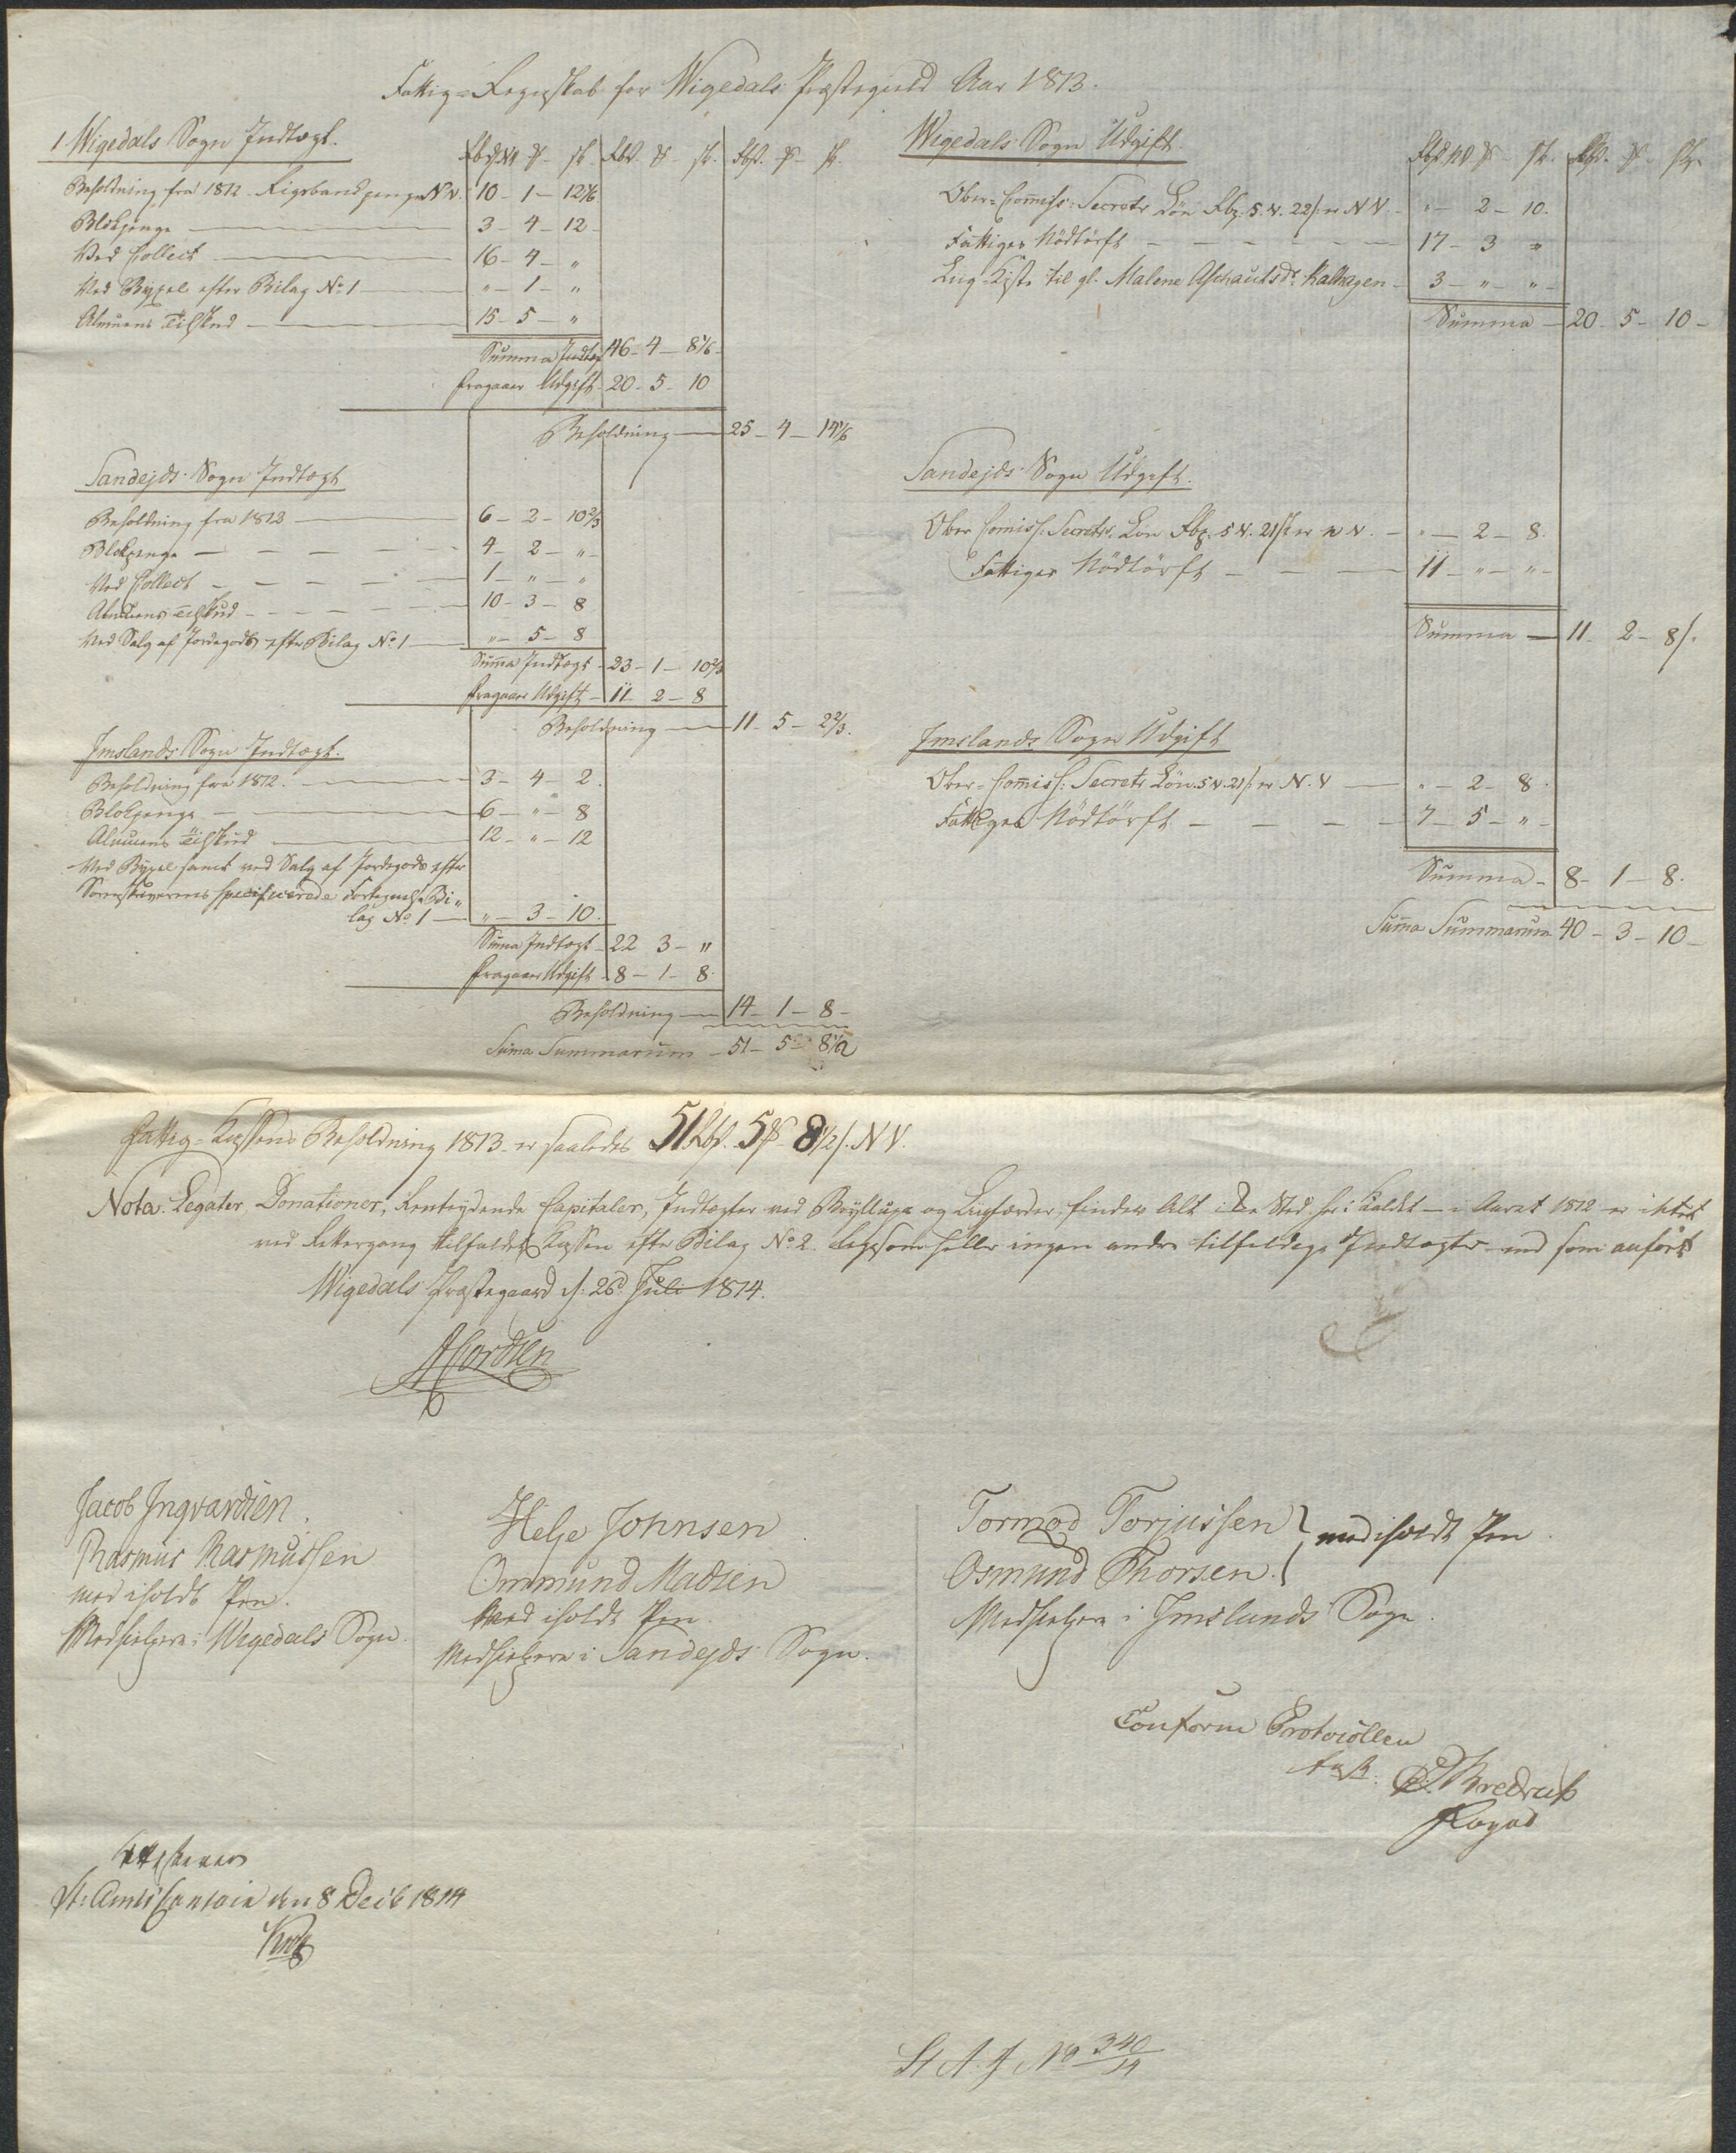 Fattig-Regnskab for Wigedals Præstegield Aar 1813.
1 Wigedals Sogn Indtægt.
Rbd. NV. ß - sk. Rbd. ß - sk. Rbd. ß - sk.
Beholdning fra 1812 - Rigsbankpenge N.V. 10 - 1 - 12 1/6
Blokpenge 3 - 4 - 12
Ved Collect 16 - 4 - "
Ved Byxel efter Bilag No 1 " - 1 - "
Almuens Tilskud 15 - 5 - "
Summa Indtægt 46 - 4 - 8 1/6
fragaaer Udgift 20 - 5 - 10
Beholdning 25 - 4 - 14 1/6
Sandejds Sogn Indtægt
Beholdning fra 1812 6 - 2 - 10 2/3
Blokpenge 4 - 2 - "
Ved Collect 1 - " - "
Almuens Tilskud 10 - 3 - 8
Ved Salg af Jordegods efter Bilag No 1 " - 5 - 8
Summa Indtægt 23 - 1 - 10 2/3
fragaaer Udgift 11 - 2 - 8
Beholdning 11 - 5 - 2 2/3.
Imslands Sogn Indtægt.
Beholdning fra 1812. 3 - 4 - 2
Blokpenge 6 - " - 8
Almuens Tilskud 12 - " - 12
Ved Byxel samt ved Salg af Jordegods efter
Sorenskriverens specificerede Fortegnelse Bi-
lag No 1 " - 3 - 10
Suma Indtægt 22 3 - "
fragaaer Udgift 8 - 1 - 8
Beholdning 14 - 1 - 8
Suma Summarum 51 - 5 - 8 1/2
Wigedals Sogn Udgift.
Rbd NV ß - sk. Rbd. ß. sk.
Ober-Commiss: Secretr Lön Rbg. 5. N. 22 s. er N.V. " - 2 - 10.
Fattiges Nödtörft 17 - 3 "
Liig-Kiste til gl. Malene Aschautsdr Kalhagen 3 - " - "
Summa 20 - 5 - 10
Sandejds Sogn Udgift.
Ober Comiss: Secretr. Lön Rbg. 5 N. 21 s. er N V. " - 2 - 8.
Fattiges Nödtörft 11 - " - "
Summa 11 - 2 - 8 s.
Imslands Sogn Udgift
Ober-Comiss: Secretr Lön. 5 N. 21 s. er N. V " - 2 - 8.
Fattiges Nödtörft 7 - 5 - "
Summa 8 - 1 - 8.
Suma Summarum 40 - 3 - 10
Fattig-Kassens Beholdning 1813 er saaledes 51 Rbd. 5 ß 8 1/2 s. N V.
Nota: Legater, Donationer, Rentydende Capitaler, Indtægter ved Brylluper og Liigfærder, findes Alt i De Sted her i Kaldet - i Aaret 1812 er intet
ved Rettergang tilfaldet Kassen efter Bilag No 2. Ligesom heller ingen andre tilfældige Indtægter end som anfört
Wigedals Præstegaard d. 26d Juli 1814.
A Cordsen
Jacob Ingvardsen.
Rasmus Rasmussen
med iholdt Pen.
Medhielpere i Wigedals Sogn.
Helje Johnsen
Ommund Madsen
Med iholdt Pen.
Medhielpere i Sandejds Sogn.
Tormod Torjussen
Osmund Thorsen. med iholdt Pen.
Medhielpere i Imslands Sogn.
Conform Protocollen
P. Bredrup
Foged
St: Amts Contoir den 8 Decb 1814
Krog
St A. J. No 340/14